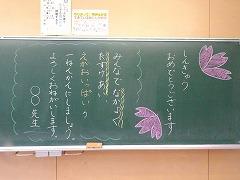 しんきゅう
おめでとうございます!
みんなでなかよく
たすけあい
えがおいっぱいの
一ねんかんにしましょう。
よろしくおねがいします。
〇〇先生